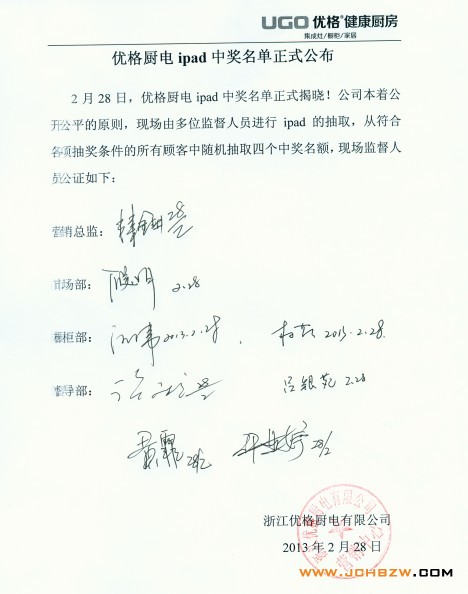 UGO 优格®健康厨房
集成灶/橱柜/家居
优格厨电 ipad 中奖名单正式公布
2 月 28 日，优格厨电 ipad 中奖名单正式揭晓！公司本着公
开公平的原则，现场由多位监督人员进行 ipad 的抽取，从符合
各项抽奖条件的所有顾客中随机抽取四个中奖名额，现场监督人
员公证如下：
营销总监： 28/2
市场部： 晓明 2.28
橱柜部： 2013.2.28 2013.2.28
督导部： 28/2 吕银苑 2.28
黄霏 28/2 28/2
浙江优格厨电有限公司
2013 年 2 月 28 日
营销中心
WWW.JCHBZW.COM